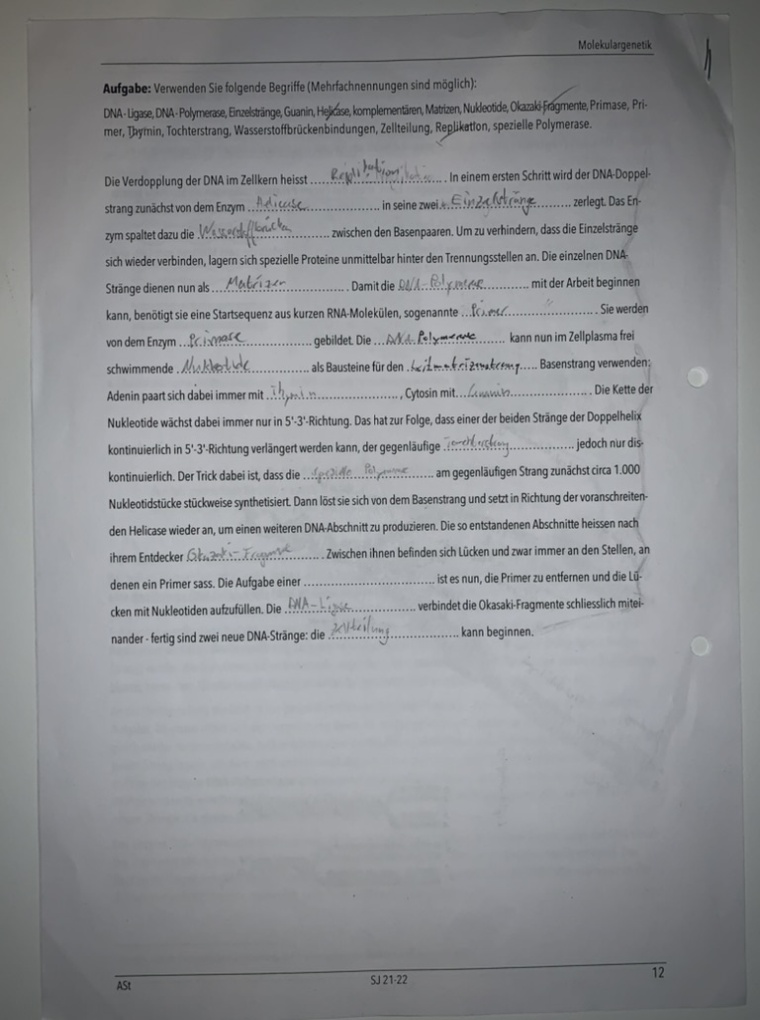 Molekulargenetik
Aufgabe: Verwenden Sie folgende Begriffe (Mehrfachnennungen sind möglich):
DNA-Ligase, DNA-Polymerase, Einzelstränge, Guanin, Helicase, komplementären, Matrizen, Nukleotide, Okazaki-Fragmente, Primase, Pri-
mer, Thymin, Tochterstrang, Wasserstoffbrückenbindungen, Zellteilung, Replikation, spezielle Polymerase.
Die Verdopplung der DNA im Zellkern heisst ... Replikation ... . In einem ersten Schritt wird der DNA-Doppel-
strang zunächst von dem Enzym ... in seine zwei ... Einzelstränge ... zerlegt. Das En-
zym spaltet dazu die ... zwischen den Basenpaaren. Um zu verhindern, dass die Einzelstränge
sich wieder verbinden, lagern sich spezielle Proteine unmittelbar hinter den Trennungsstellen an. Die einzelnen DNA-
Stränge dienen nun als ... Matrizen ... . Damit die DNA-Polymerase ... mit der Arbeit beginnen
kann, benötigt sie eine Startsequenz aus kurzen RNA-Molekülen, sogenannte ... Primer ... . Sie werden
von dem Enzym ... Primase ... gebildet. Die ... DNA-Polymerase ... kann nun im Zellplasma frei
schwimmende ... Nukleotide ... als Bausteine für den ... Basenstrang verwenden:
Adenin paart sich dabei immer mit ... Thymin ... , Cytosin mit ... . Die Kette der
Nukleotide wächst dabei immer nur in 5'-3'-Richtung. Das hat zur Folge, dass einer der beiden Stränge der Doppelhelix
kontinuierlich in 5'-3'-Richtung verlängert werden kann, der gegenläufige ... jedoch nur dis-
kontinuierlich. Der Trick dabei ist, dass die ... spezielle Polymerase ... am gegenläufigen Strang zunächst circa 1.000
Nukleotidstücke stückweise synthetisiert. Dann löst sie sich von dem Basenstrang und setzt in Richtung der voranschreiten-
den Helicase wieder an, um einen weiteren DNA-Abschnitt zu produzieren. Die so entstandenen Abschnitte heissen nach
ihrem Entdecker ... . Zwischen ihnen befinden sich Lücken und zwar immer an den Stellen, an
denen ein Primer sass. Die Aufgabe einer ... ist es nun, die Primer zu entfernen und die Lü-
cken mit Nukleotiden aufzufüllen. Die ... DNA-Ligase ... verbindet die Okasaki-Fragmente schliesslich mitei-
nander - fertig sind zwei neue DNA-Stränge: die ... kann beginnen.
ASt
SJ 21-22
12